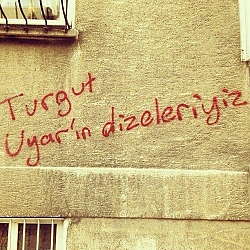 Turgut
Uyar'ın dizeleri'yiz